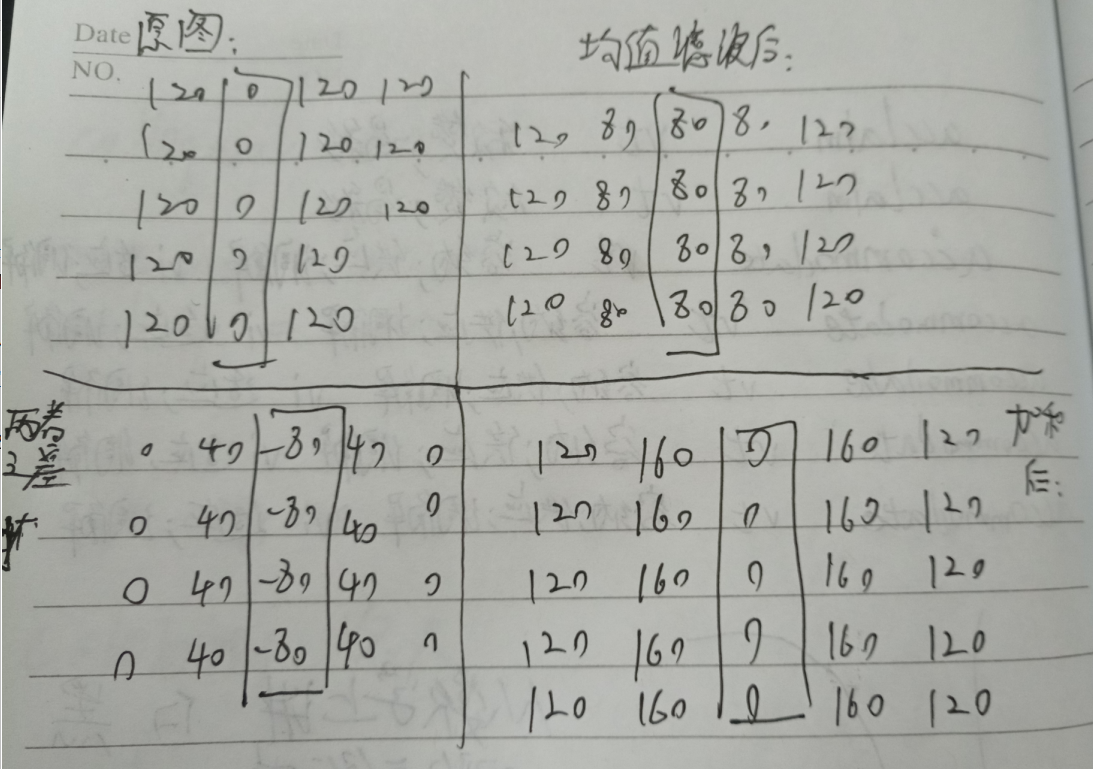 Date 原图:
NO.
120 0 120 120
120 0 120 120
120 0 120 120
120 0 120
120 0 120
均值滤波后:
120 80 80 80 120
120 80 80 80 120
120 80 80 80 120
120 80 80 80 120
两者
之差
0 40 -80 40 0
0 40 -80 40 0
0 40 -80 40 0
0 40 -80 40 0
加和
后:
120 160 0 160 120
120 160 0 160 120
120 160 0 160 120
120 160 0 160 120
120 160 0 160 120